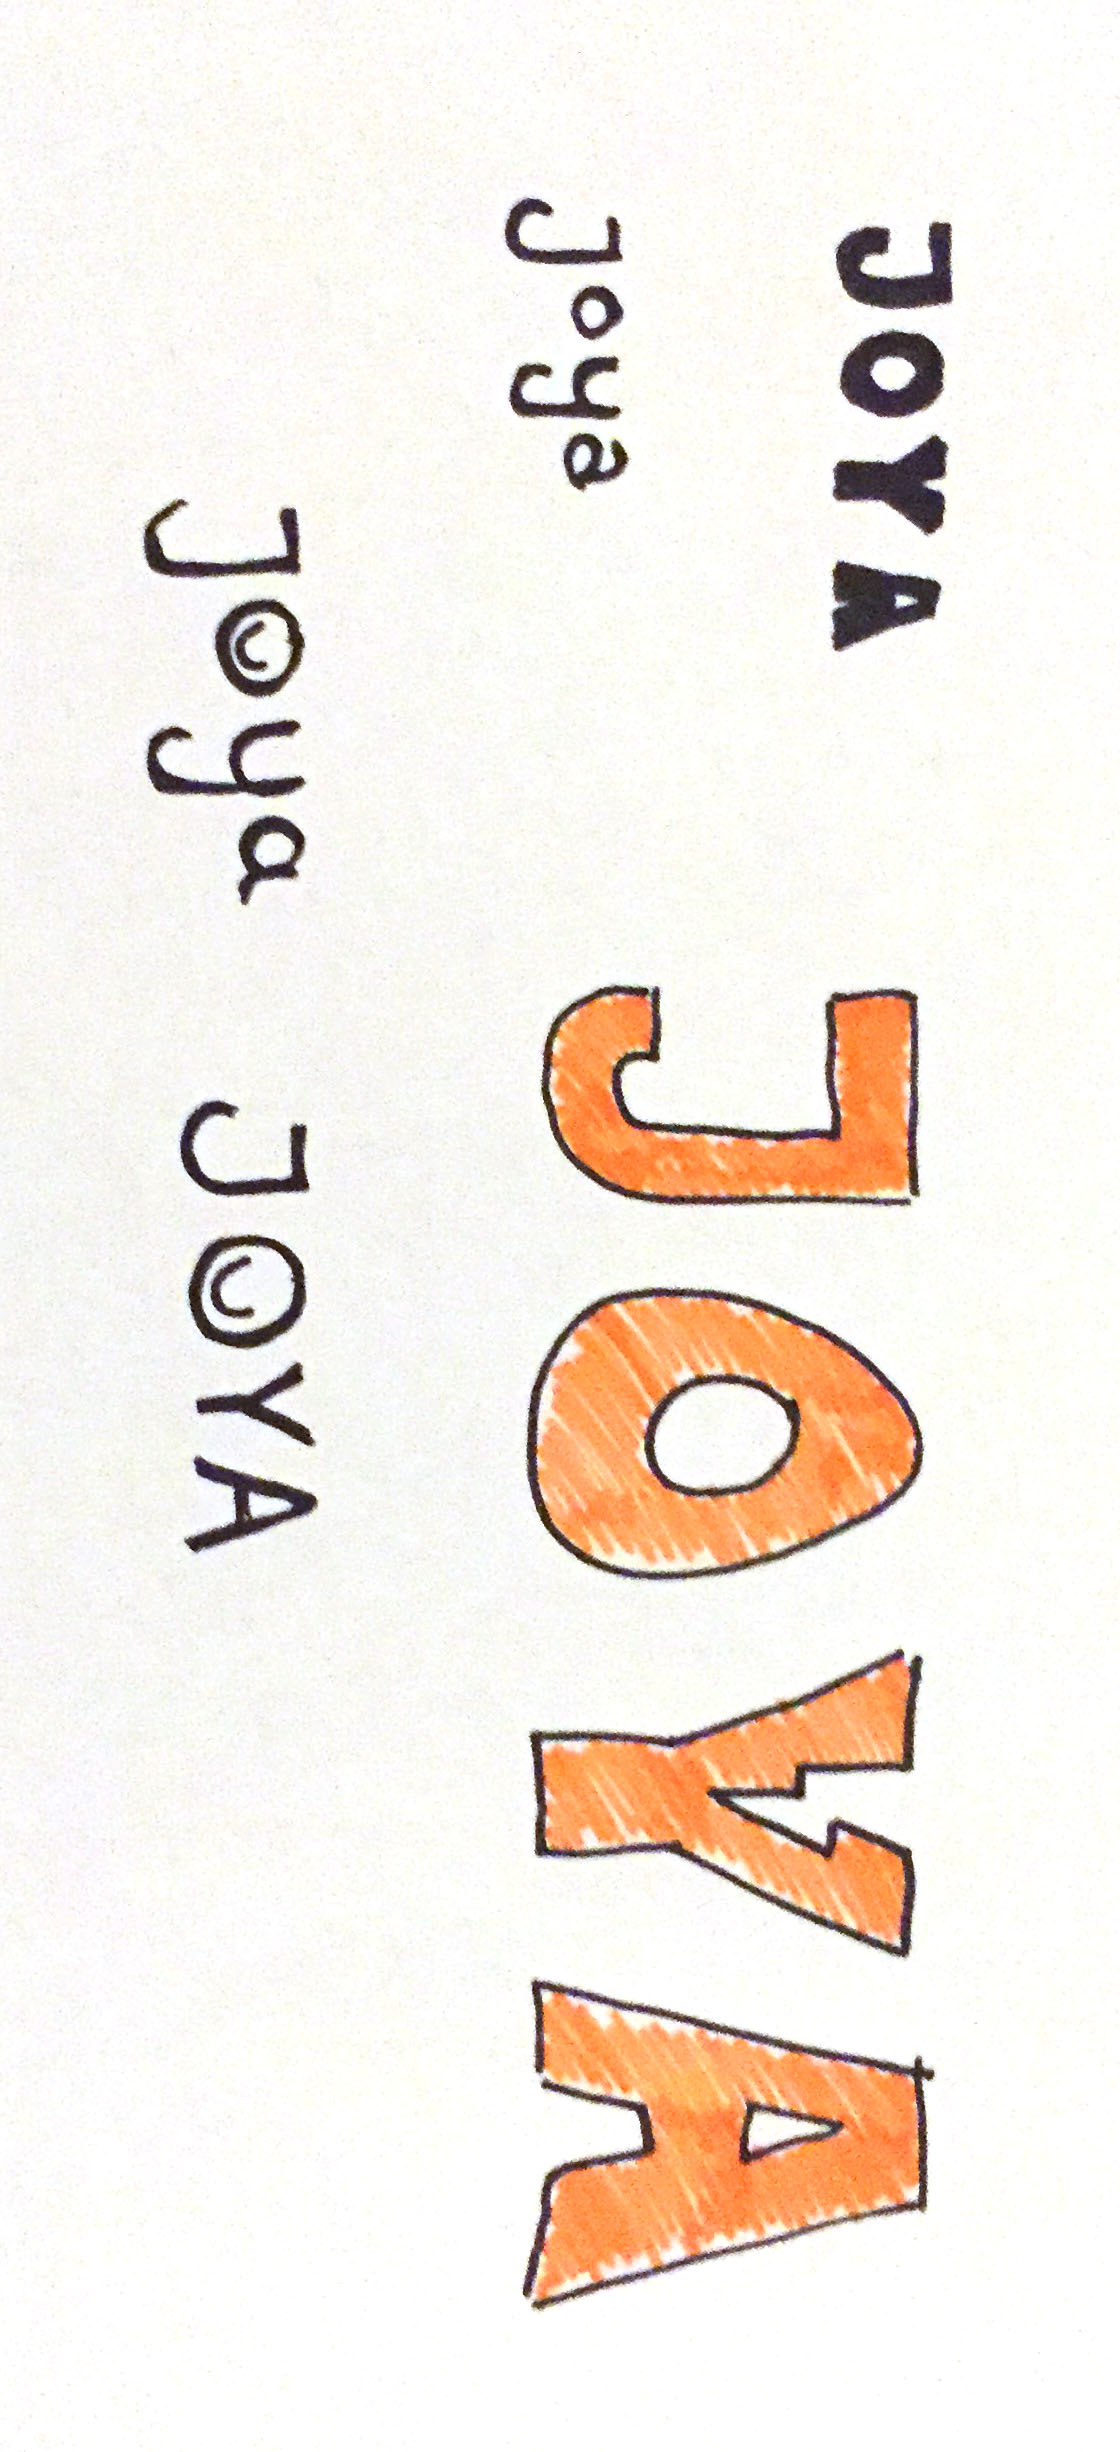 JOYA
Joya
JOYA
Joya
JOYA